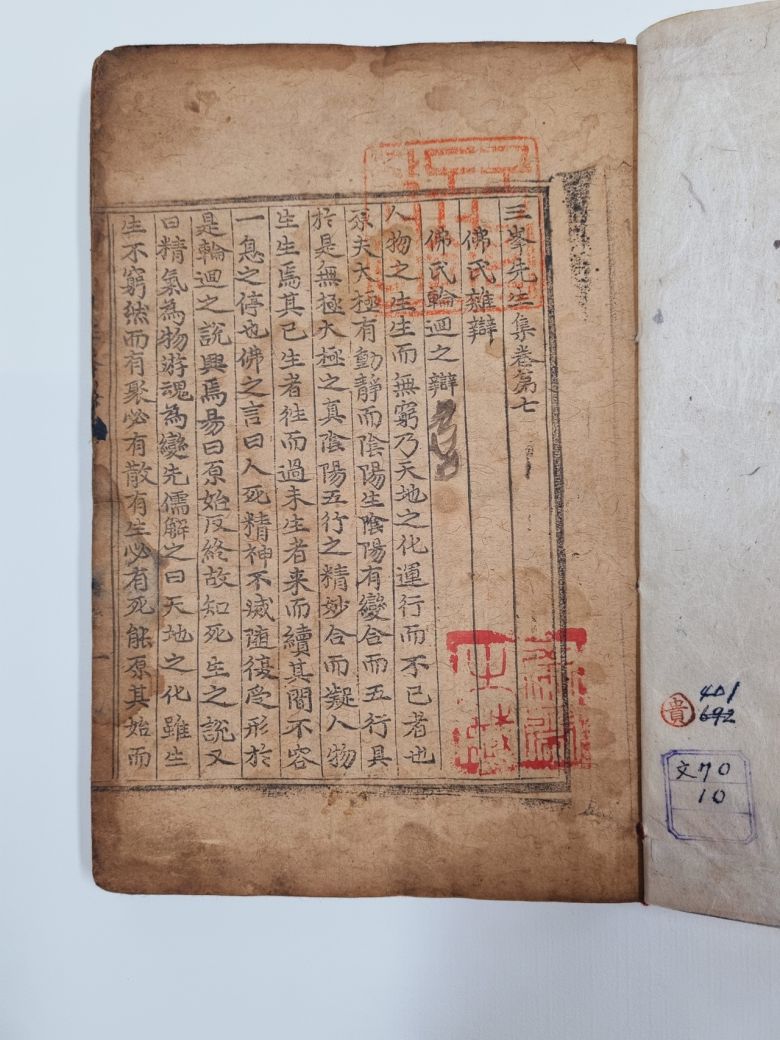 三峯先生集卷第七
佛氏雜辯
佛氏輪迴之辯
人物之生生而無窮乃天地之化運行而不已者也
原夫太極有動靜而陰陽生陰陽有變合而五行具
於是無極太極之真陰陽五行之精妙合而凝人物
生生焉其已生者徃而過未生者来而續其間不容
一息之停也佛之言曰人死精神不滅随復受形於
是輪迴之說興焉易曰原始反終故知死生之說又
曰精氣為物游魂為變先儒解之曰天地之化雖生
生不窮然而有聚必有散有生必有死能原其始而
401
貴 692
文70
10